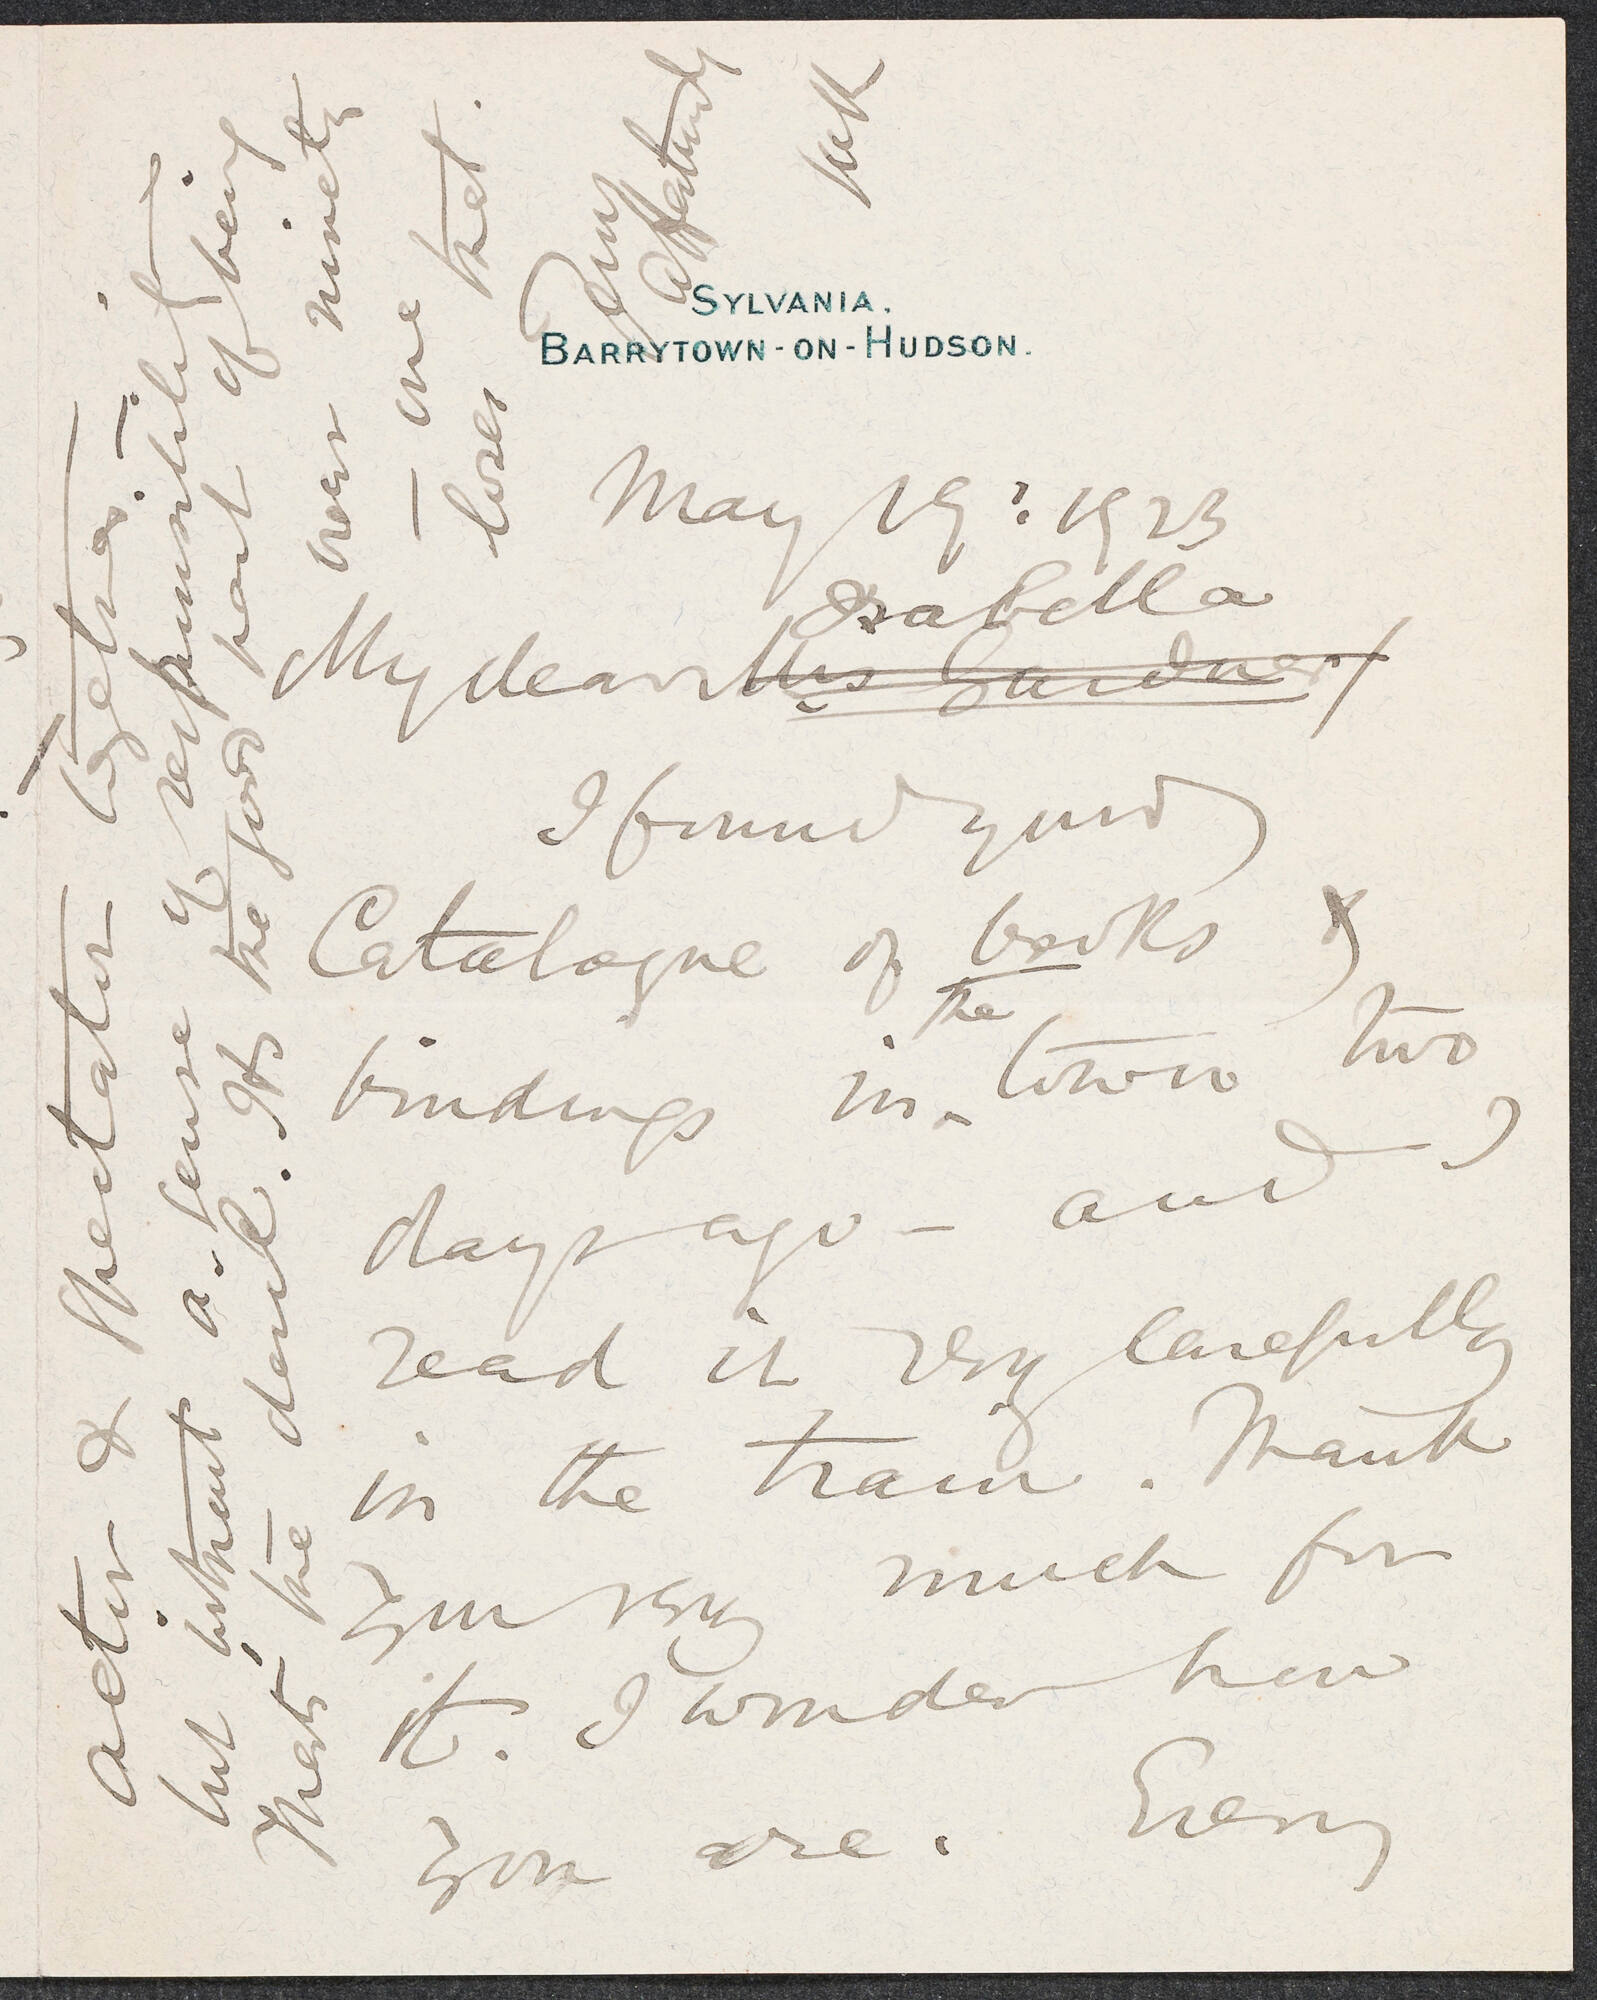 SYLVANIA.
BARRYTOWN-ON-HUDSON.
May 19: 1923
Isabella
My dear Mrs Gardner
I found your
Catalogue of books &
bindings in the town two
days ago — and
read it very carefully
in the train. Thank
you very much for
it. I wonder how
you are. Every
actor & spectator together.
but without a sense of responsibility —
That's the devil. Its the good part of being
over ninety
— one
loses that.
Your
affectionately